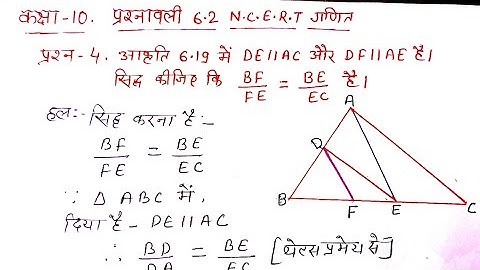 कक्षा-10. प्रश्नावली 6.2 N.C.E.R.T गणित
प्रश्न-4. आकृति 6.19 में DE||AC और DF||AE है।
सिद्ध कीजिए कि BF/FE = BE/EC है।
हल:- सिद्ध करना है:-
BF/FE = BE/EC
∵ Δ ABC में,
दिया है- DE||AC
∴ BD/DA = BE/EC [थेल्स प्रमेय से]
A
D
B
F
E
C